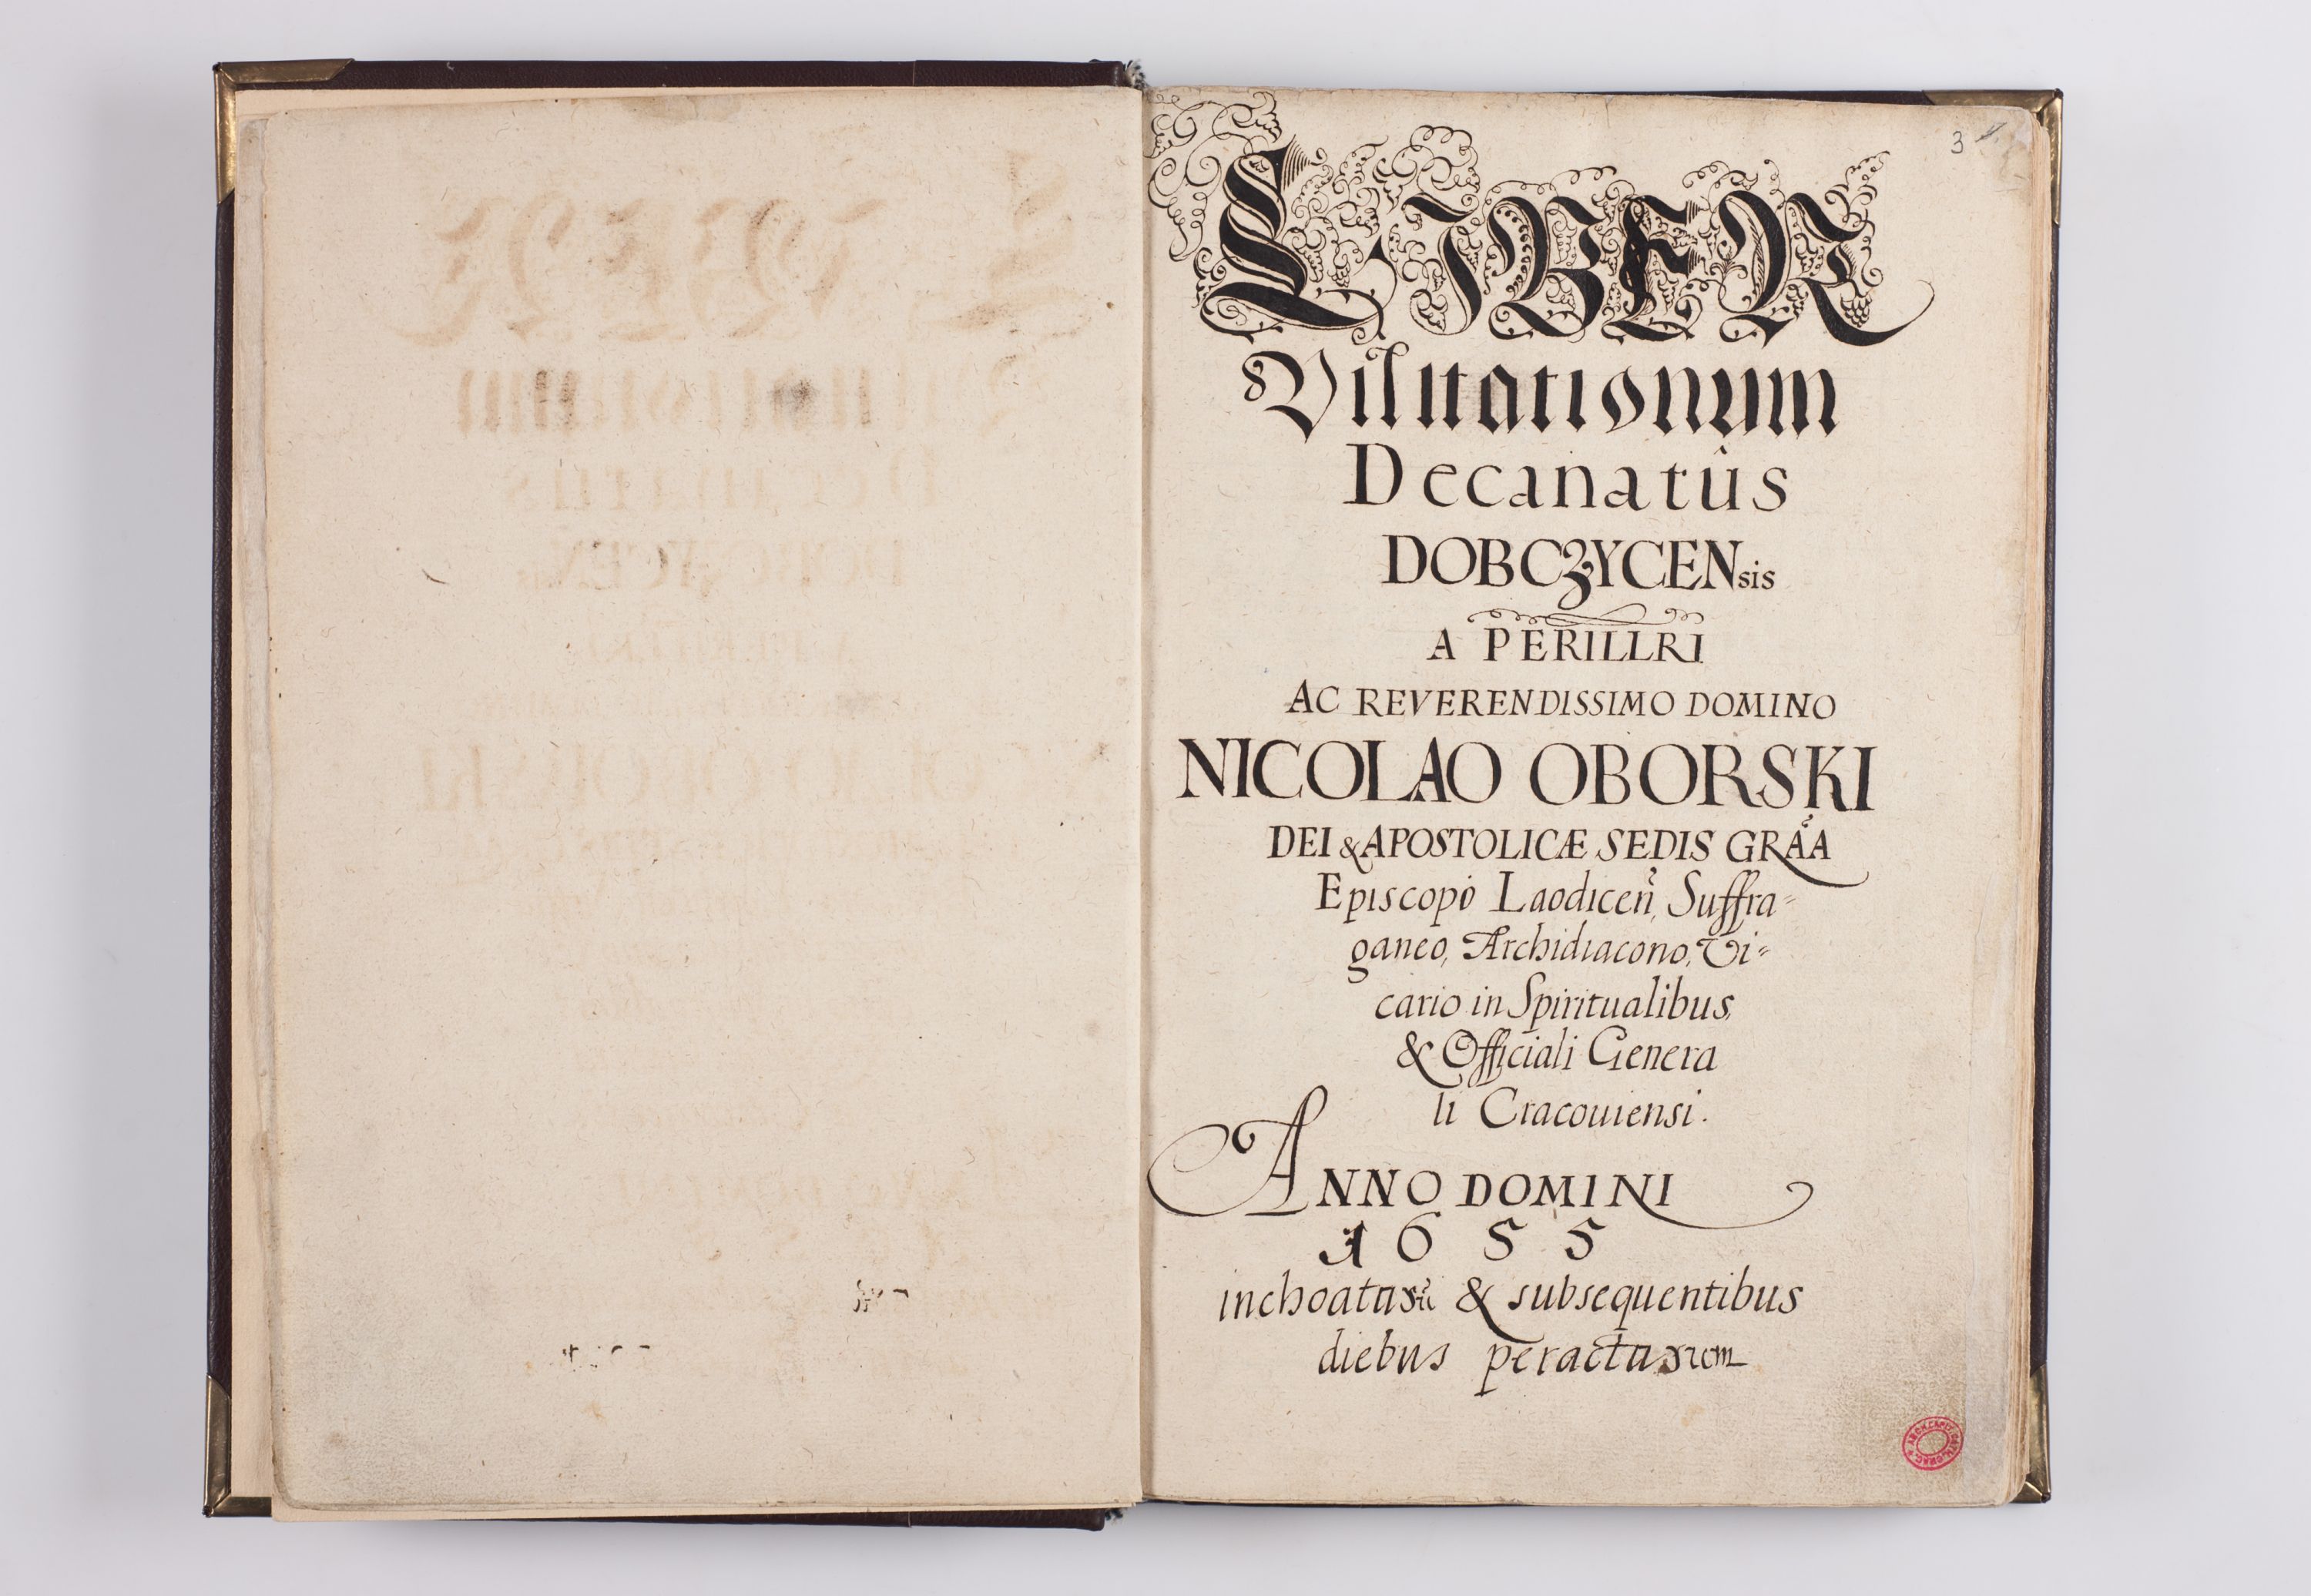 3
LIBER
Visitationum
Decanatûs
DOBCZYCENsis
A PERILLRI
AC REVERENDISSIMO DOMINO
NICOLAO OBORSKI
DEI & APOSTOLICÆ SEDIS GRÃA
Episcopo Laodiceñ, Suffra=
ganeo, Archidiacono, Vi=
cario in Spiritualibus,
& Officiali Genera
li Cracouiensi.
ANNO DOMINI
1655
& subsequentibus
diebus
ARCH. CAPIT. CATH. CRAC.